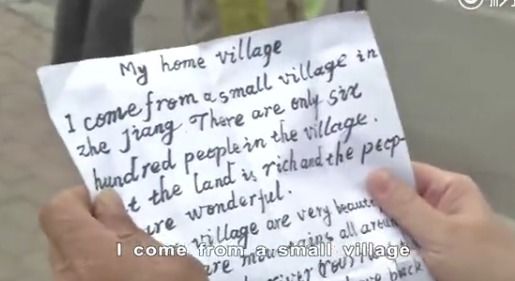 My home village
I come from a small village in
zhe Jiang. There are only six
hundred people in the village.
t the land is rich and the peop-
re wonderful.
village are very beaut
I come from a small village
are mountains all aroun
back